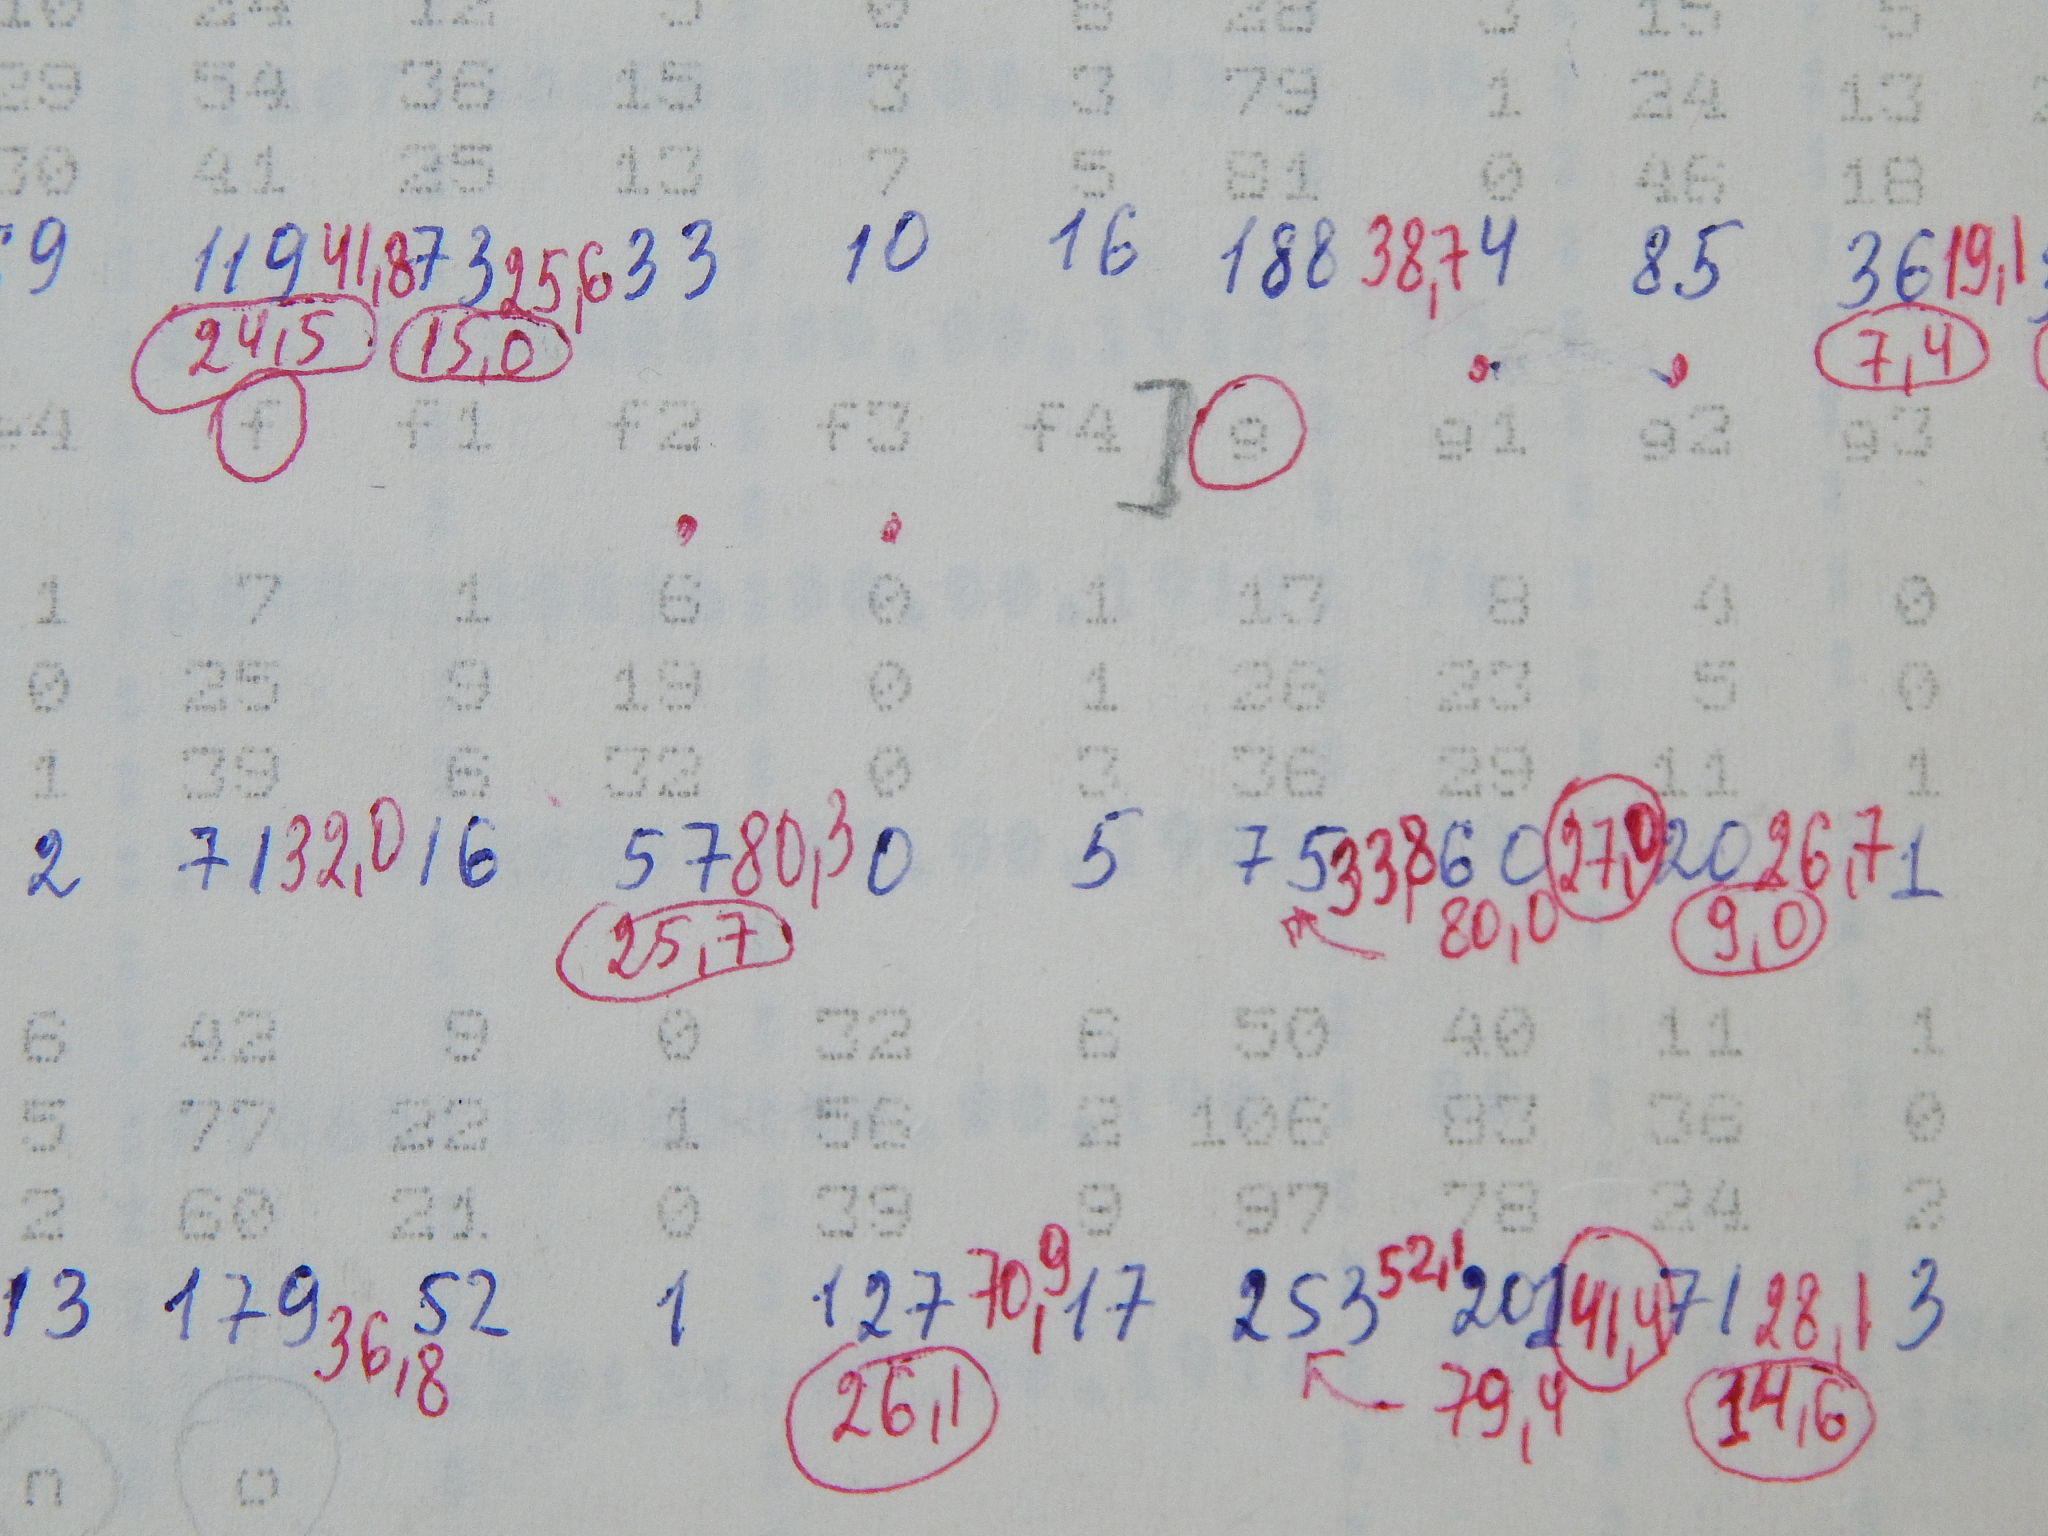 54 36 15 3 3 79 1 24 13
41 25 13 7 5 81 0 46 18
9 119 41,8 73 25,6 33 10 16 188 38,7 4 85 36 19,1
24,5 15,0 7,4
f f1 f2 f3 f4 ] g g1 g2 g3
1 7 1 6 0 1 13 8 4 0
0 25 9 19 0 1 26 23 5 0
1 39 6 32 0 3 36 29 11 1
2 71 32,0 16 57 80,3 0 5 75 33,8 60 27,0 20 26,7 1
25,7 80,0 9,0
6 42 9 0 32 6 50 40 11 1
5 77 22 1 56 2 106 83 36 0
2 60 21 0 39 9 97 78 24 2
13 179 36,8 52 1 127 70,9 17 253 52,1 201 41,4 71 28,1 3
26,1 79,4 14,6
n o